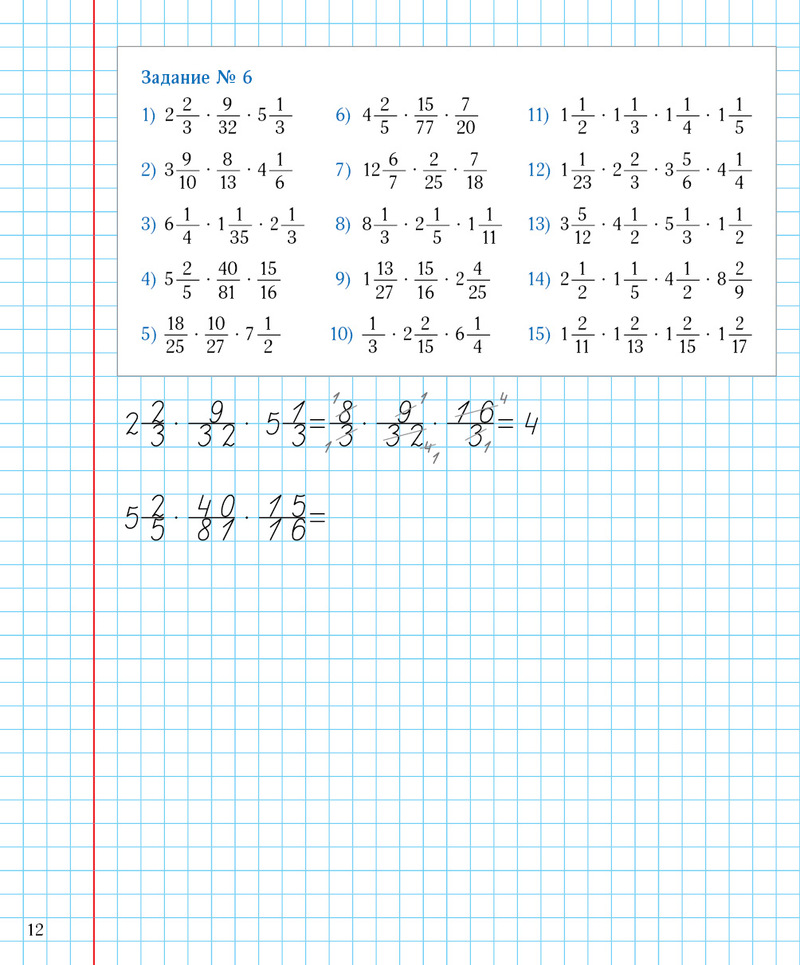 Задание № 6
1) 2 2/3 · 9/32 · 5 1/3
2) 3 9/10 · 8/13 · 4 1/6
3) 6 1/4 · 1 1/35 · 2 1/3
4) 5 2/5 · 40/81 · 15/16
5) 18/25 · 10/27 · 7 1/2
6) 4 2/5 · 15/77 · 7/20
7) 12 6/7 · 2/25 · 7/18
8) 8 1/3 · 2 1/5 · 1 1/11
9) 1 13/27 · 15/16 · 2 4/25
10) 1/3 · 2 2/15 · 6 1/4
11) 1 1/2 · 1 1/3 · 1 1/4 · 1 1/5
12) 1 1/23 · 2 2/3 · 3 5/6 · 4 1/4
13) 3 5/12 · 4 1/2 · 5 1/3 · 1 1/2
14) 2 1/2 · 1 1/5 · 4 1/2 · 8 2/9
15) 1 2/11 · 1 2/13 · 1 2/15 · 1 2/17
1 1 4
2 2/3 · 9/32 · 5 1/3 = 8/3 · 9/32 · 16/3 = 4
1 4 1 1
5 2/5 · 40/81 · 15/16 =
12